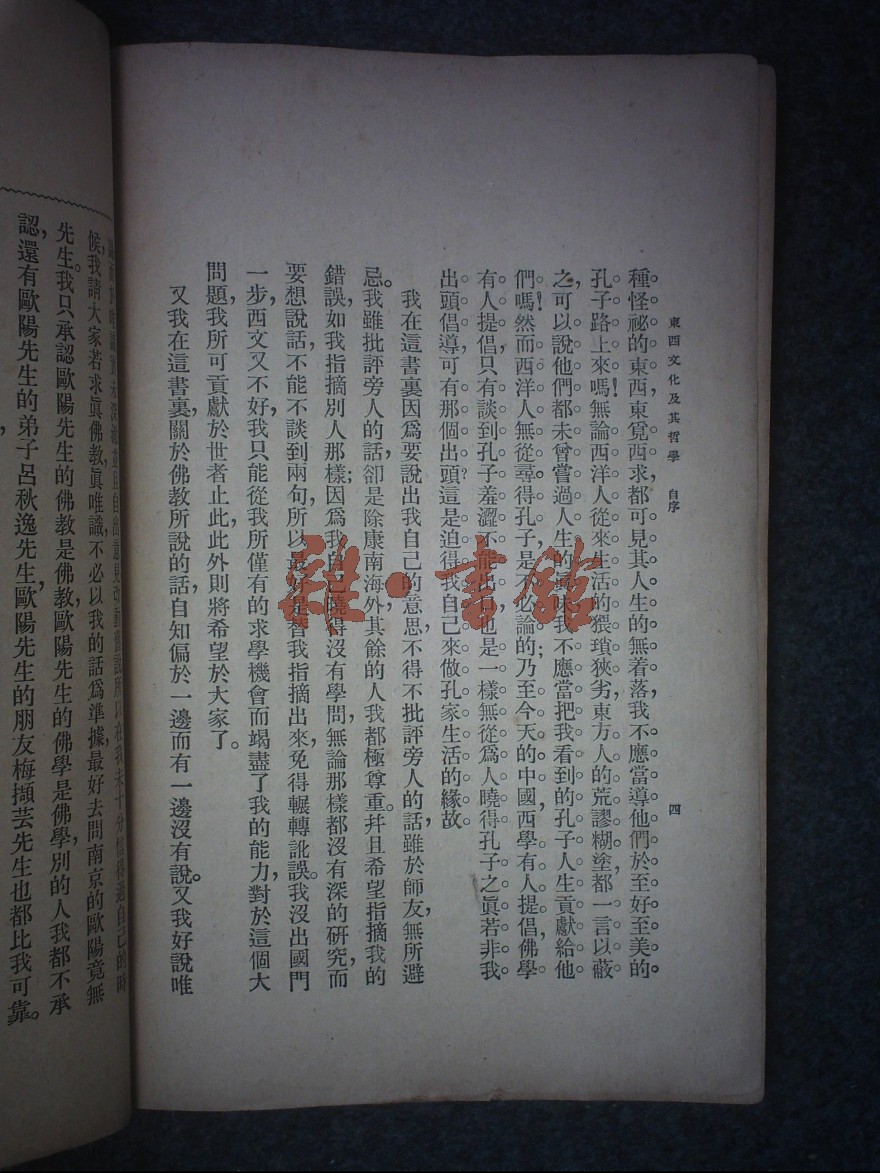 東西文化及其哲學 自序 四
種怪祕的東西,東覓西求,都可見其人生的無着落,我不應當導他們於至好至美的
孔子路上來嗎!無論西洋人從來生活的猥瑣狹劣,東方人的荒謬糊塗,都一言以蔽
之,可以說他們都未曾嘗過人生的眞味,我不應當把我看到的孔子人生貢獻給他
們嗎!然而西洋人無從尋得孔子,是不必論的;乃至今天的中國,西學有人提倡,佛學
有人提倡,只有談到孔子羞澀不能出口,也是一樣無從爲人曉得孔子之眞若非我
出頭倡導,可有那個出頭?這是迫得我自己來做孔家生活的緣故。
我在這書裏因爲要說出我自己的意思,不得不批評旁人的話,雖於師友,無所避
忌。我雖批評旁人的話,卻是除康南海外其餘的人我都極尊重。幷且希望指摘我的
錯誤,如我指摘別人那樣;因爲我自己曉得沒有學問,無論那樣都沒有深的研究,而
要想說話,不能不談到兩句,所以最好是替我指摘出來,免得輾轉訛誤。我沒出國門
一步,西文又不好,我只能從我所僅有的求學機會而竭盡了我的能力,對於這個大
問題,我所可貢獻於世者止此,此外則將希望於大家了。
又我在這書裏,關於佛敎所說的話,自知偏於一邊而有一邊沒有說。又我好說唯
候,我請大家若求眞佛敎,眞唯識,不必以我的話爲準據,最好去問南京的歐陽竟無
先生。我只承認歐陽先生的佛敎是佛敎,歐陽先生的佛學是佛學,別的人我都不承
認,還有歐陽先生的弟子呂秋逸先生,歐陽先生的朋友梅擷芸先生也都比我可靠。
雜·書館